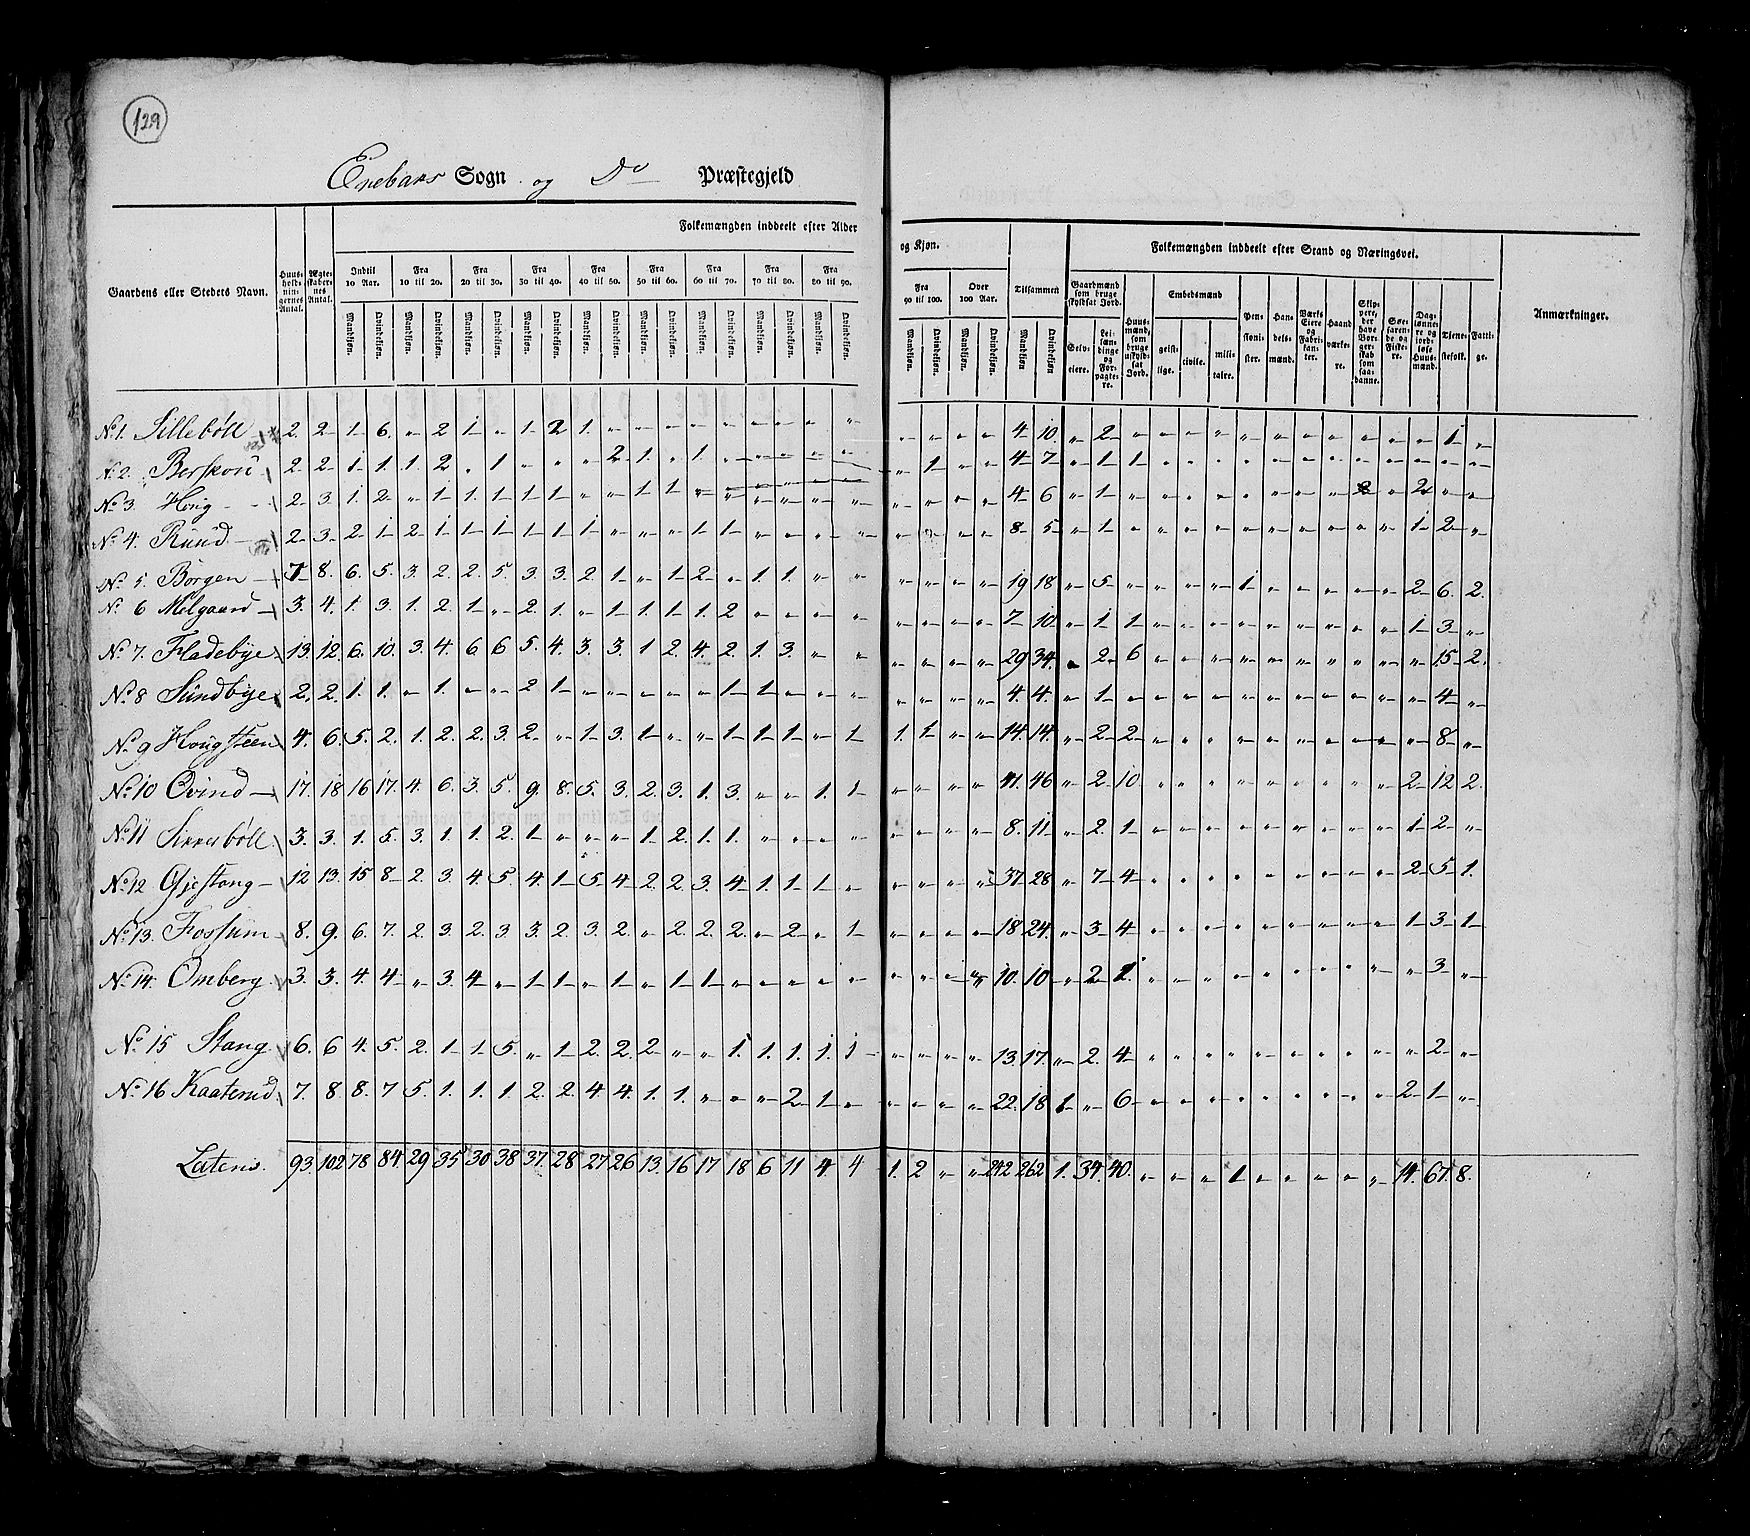 129
Enebaks Sogn og Do Præstegjeld
Gaardens eller Stedets Navn.
Huusholdningernes Antal.
Ægteskabernes Antal.
Folkemængden inddeelt efter Alder og Kjøn.
Indtil 10 Aar. Fra 10 til 20. Fra 20 til 30. Fra 30 til 40. Fra 40 til 50. Fra 50 til 60. Fra 60 til 70. Fra 70 til 80. Fra 80 til 90. Fra 90 til 100. Over 100 Aar. Tilsammen
Mandkjøn. Qvindekjøn.
Folkemængden inddeelt efter Stand og Næringsvei.
Gaardmænd som bruge skyldsat Jord.
Selveiere. Leilændinge og Forpagtere.
Huusmænd, som bruge uskyldsat Jord.
Embedsmænd
geistlige. civile. militaire.
Pensionister. Handelsmænd. Værks Eiere og Fabrikanter. Haandværkere. Skippere, der have Borgerskab som saadanne. Søefarende og Fiskere. Daglønnere og jordløse Huusmænd. Tienestefolk. Fattige.
Anmærkninger.
No 1. Sillebøll 2. 2 1. 6. „ 2 1 „ 1. 2 1. „ „ „ „ „ „ „ „ „ „ „ „ 4 10. „ 2 „ „ „ „ „ „ „ „ „ „ „ 1 „
No 2. Berskou 2. 2 1 1. 1. 2 „ 1 „ „ „ 2 1. „ 1. „ „ „ „ „ „ 1 „ „ 4 7 „ 1 1 „ „ „ „ „ „ „ „ „ „ „ „
No 3. Houg 2 3 1. 2 „ 1 1. 1 1. 1 „ „ 1 1. „ „ „ „ „ „ „ „ „ „ 4 6 „ 1 „ „ „ „ „ „ „ „ 2 „ „
No 4. Ruud 2 3 2 1 2 1 1 1 1 1 1 „ „ „ 1 1 „ „ „ „ „ „ „ „ 8 5 „ 1 „ „ „ „ „ „ „ „ „ „ 1 2 „
No 5. Børgen 7 8. 6. 5. 3. 2. 2. 5. 3. 3. 2 1 „ 1 2 „ 1. 1. „ „ „ „ „ „ 19 18 „ 5 „ „ „ „ 1 „ „ „ „ „ 2 6. 2.
No 6 Melgaard 3. 4. 1. 3. 1. 2. 1 „ 2. 1. „ 1. 1. 1. 1. 2 „ „ „ „ „ „ „ „ 7 10. „ 1 1 „ „ „ „ „ „ „ „ „ 1 3 „
No 7. Fladebye 13. 12. 6. 10. 3. 4. 6 6 5. 4. 3. 3. 1 2. 4. 2. 1. 3. „ „ „ „ „ „ 29 34. „ 2 6 „ „ „ „ „ „ „ „ „ „ 15 2.
No 8 Sundbye 2. 2. 1. 1. „ 1. „ „ 2 1 „ „ „ „ „ 1 1 „ „ „ „ „ „ „ 4. 4. „ 1 „ „ „ „ „ „ „ „ „ „ „ 4 „
No 9 Hougsteen 4. 6. 5. 2. 1. 2. 2. 3. 2. „ 1. 3. 1 „ „ 1 1. 1 „ 1 1. 1 „ „ 14. 14. „ 2 2 „ „ „ „ „ „ „ „ „ „ 8 „
No 10 Qvind 17. 18 16 17. 4. 6. 3. 5. 9. 8. 5. 3. 2. 3. 1. 3. „ „ 1. 1 „ „ „ „ 41. 46 „ 2 10 „ „ „ „ „ „ „ „ „ 2 12 2.
No 11 3. 3. 1. 5. 3. 1 1. 2. 1 „ „ „ 1 2. 1. 1. „ „ „ „ „ „ „ „ 8. 11 „ 2. 1 „ „ „ „ „ „ „ „ „ 1 2 „
No 12 Gjestang 12 13. 15 8 2. 3. 4. 5. 4. 1 5 4 2. 2. 3. 4. 1. 1. 1. „ „ „ „ „ 37 28 „ 7 4 „ „ „ „ „ „ „ „ „ 2 5 1.
No 13. Fossum 8. 9. 6. 7. 2. 3. 2. 3. 3. 2. 3. 2 „ 2. 2. 2. „ 2. „ 1 „ „ „ „ 18 24. „ 3 4 „ „ „ „ „ „ „ „ „ 1 3 1
No 14. Omberg 3. 3. 4. 4 „ 3. 4 „ 1 1. „ 1 „ 1 1. „ „ „ „ „ „ „ „ „ 10. 10 „ 2 1. „ „ „ „ „ „ „ „ „ „ 3 „
No 15 Stang 6. 6 4. 5. 2. 1 1. 5. „ 1 2. 2. 2 „ „ 1. 1. 1. 1. 1 „ „ „ „ 13. 17. „ 2. 4 „ „ „ „ „ „ „ „ „ „ 2 „
No 16 Kaaterud 7. 8. 8. 7 5. 1. 1. 1. 2. 2. 4. 4. 1. 1. „ „ „ 2 1. „ „ „ „ „ 22. 18 1 „ 6 „ „ „ „ „ „ „ „ „ 2 1 „
Lateris. 93. 102 78 84. 29 35 30 38 37. 28 27 26 13. 16 17 18 6 11 4 4 1. 2 „ „ 242 262 1. 34. 40. „ „ „ 1 „ „ „ „ „ 14. 67. 8.